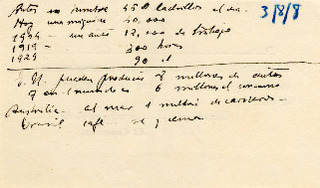 Antes un hombre 450 ladrillos al dia. 3/8/8
Hoy una máquina 40.000
1904 - un auto 12,000 de trabajo
1919 - 300 horas
1929 90 d
E. U. pueden producir 8 millones de autos
y en 6 millones el consumo
Australia al mar 1 millón de carneros.
Brasil café se quema